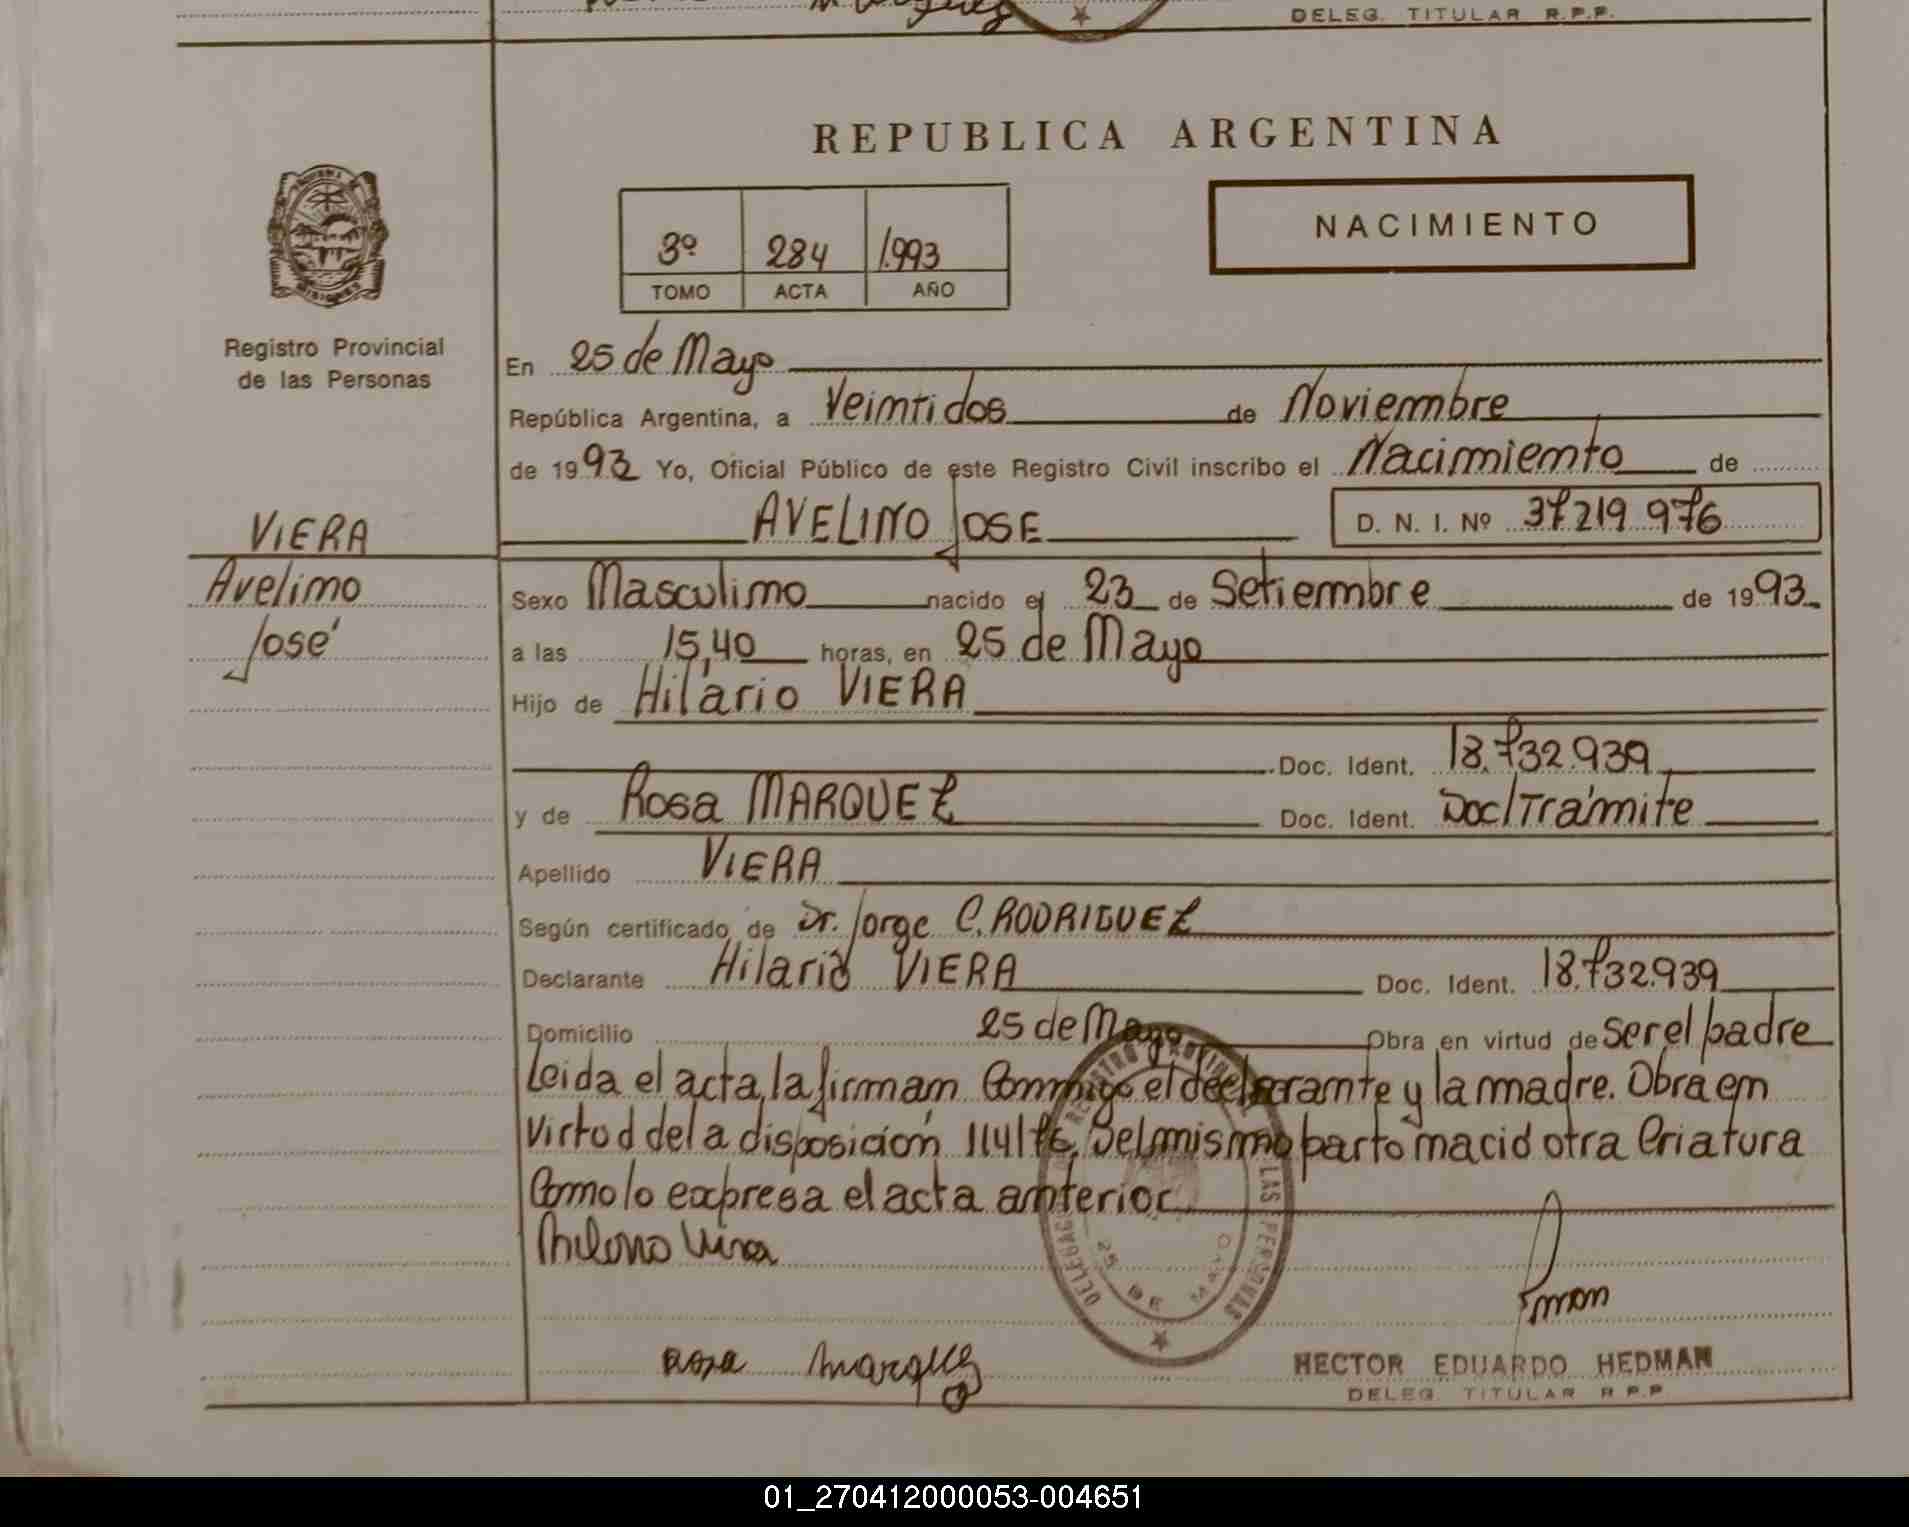 DELEG. TITULAR R.P.P.
REPUBLICA ARGENTINA
NACIMIENTO
3º 284 1.993
TOMO ACTA AÑO
Registro Provincial
de las Personas
En 25 de Mayo
República Argentina, a Veintidos de Noviembre
de 1993 Yo, Oficial Público de este Registro Civil inscribo el Nacimiento de
AVELINO JOSE D. N. I. Nº 37219976
VIERA
Avelino
José
Sexo Masculino nacido el 23 de Setiembre de 1993
a las 15,40 horas, en 25 de Mayo
Hijo de Hilario VIERA
Doc. Ident. 18.732.939
y de Rosa MARQUEZ Doc. Ident. Doc/Trámite
Apellido VIERA
Según certificado de Dr. Jorge C. RODRIGUEZ
Declarante Hilario VIERA Doc. Ident. 18.732.939
Domicilio 25 de Mayo Obra en virtud de ser el padre
Leida el acta, la firman Conmigo el declarante y la madre. Obra en
Virtud de la disposición 114/76. Del mismo parto nació otra Criatura
Como lo expresa el acta anterior
DELEGACION REGISTRO PROVINCIAL DE LAS PERSONAS
25 DE MAYO
Rosa Marquez
HECTOR EDUARDO HEDMAN
DELEG. TITULAR R.P.P.
01_270412000053-004651